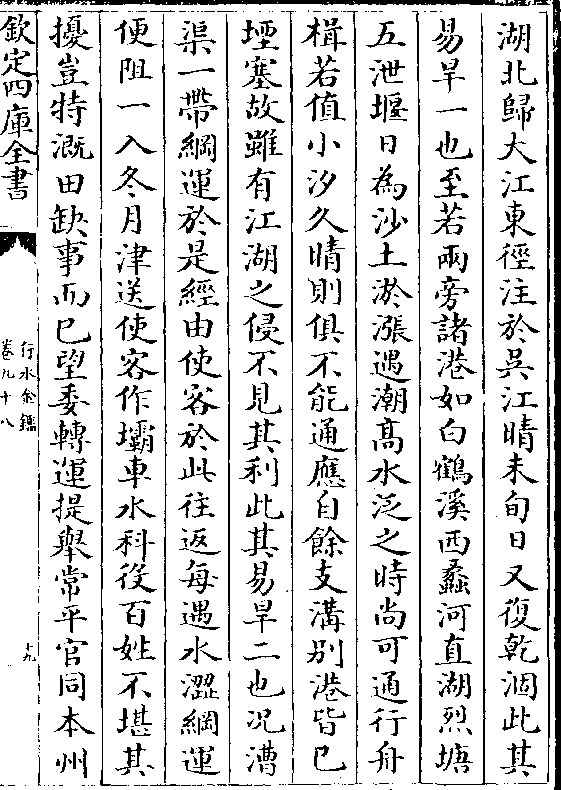 湖北歸大江東徑注於吳江晴未旬日又復乾涸此其
易旱一也至若兩旁諸港如白鶴溪西蠡河直湖烈塘
五泄堰日為沙土淤漲遇潮髙水泛之時尚可通行舟
楫若值小汐久晴則俱不能通應自餘支溝別港皆已
堙塞故雖有江湖之侵不見其利此其易旱二也况漕
渠一帶綱運於是經由使客於此往返每遇水澀綱運
便阻一入冬月津送使客作壩車水科役百姓不堪其
擾豈特溉田缺事而已望委轉運提舉常平官同本州
欽定四庫全書
行水金鑑
卷九十八
十九